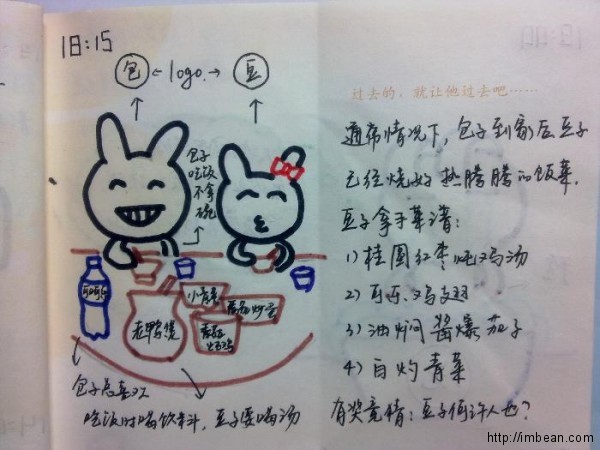 18:15
包 ← logo → 豆
包子
吃饭
不拿
碗
可口可乐
小青菜
番茄炒蛋
老鸭煲
包子总喜欢
吃饭时喝饮料,豆子要喝汤
过去的,就让他过去吧……
通常情况下,包子到家后豆子
已经烧好热腾腾的饭菜.
豆子拿手菜谱:
1) 桂圆红枣炖鸡汤
2) 可乐鸡翅
3) 油焖酱爆茄子
4) 白灼青菜
有奖竞猜:豆子何许人也?
http://imbean.com